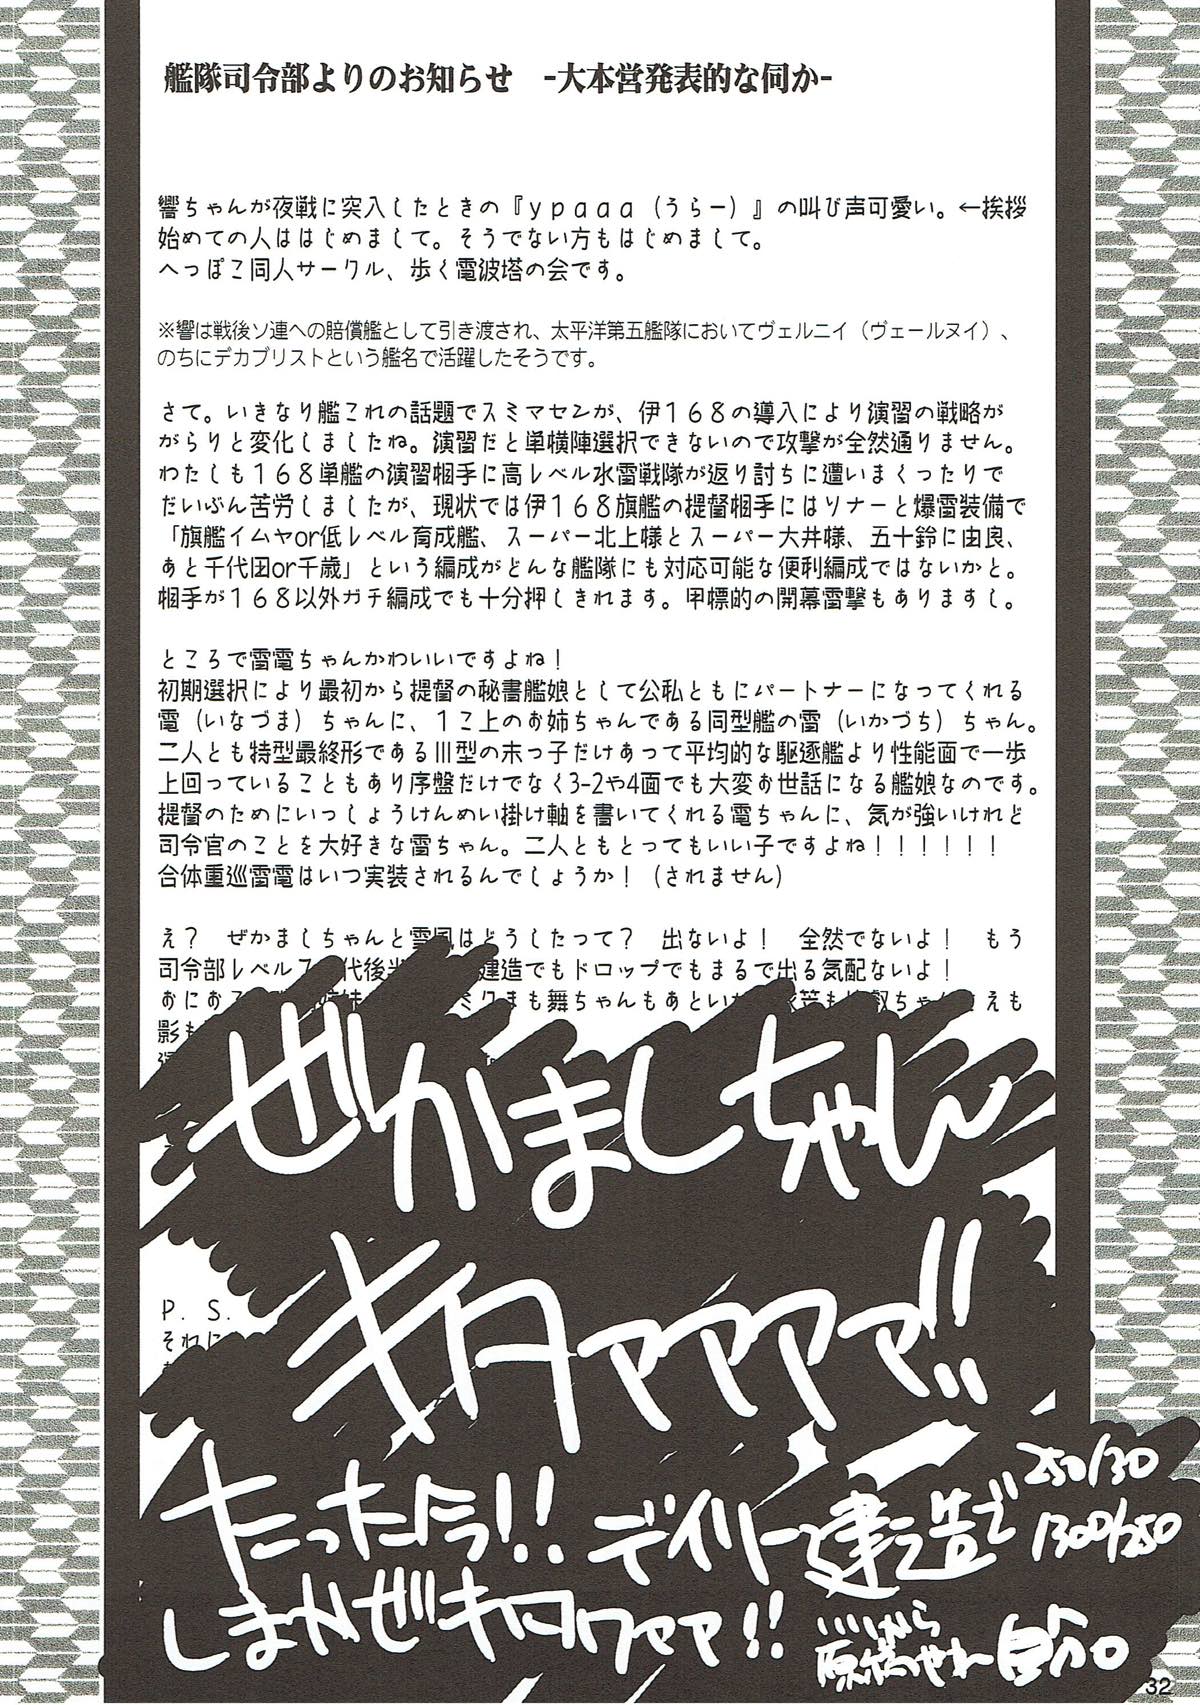 艦隊司令部よりのお知らせ　-大本営発表的な何か-
響ちゃんが夜戦に突入したときの『ypaaa（うらー）』の叫び声可愛い。←挨拶
始めての人ははじめまして。そうでない方もはじめまして。
へっぽこ同人サークル、歩く電波塔の会です。
※響は戦後ソ連への賠償艦として引き渡され、太平洋第五艦隊においてヴェルニイ（ヴェールヌイ）、
のちにデカブリストという艦名で活躍したそうです。
さて。いきなり艦これの話題でスミマセンが、伊１６８の導入により演習の戦略が
がらりと変化しましたね。演習だと単横陣選択できないので攻撃が全然通りません。
わたしも１６８単艦の演習相手に高レベル水雷戦隊が返り討ちに遭いまくったりで
だいぶん苦労しましたが、現状では伊１６８旗艦の提督相手にはソナーと爆雷装備で
「旗艦イムヤor低レベル育成艦、スーパー北上様とスーパー大井様、五十鈴に由良、
あと千代田or千歳」という編成がどんな艦隊にも対応可能な便利編成ではないかと。
相手が１６８以外ガチ編成でも十分押しきれます。甲標的の開幕雷撃もありますし。
ところで雷電ちゃんかわいいですよね！
初期選択により最初から提督の秘書艦娘として公私ともにパートナーになってくれる
電（いなづま）ちゃんに、１こ上のお姉ちゃんである同型艦の雷（いかづち）ちゃん。
二人とも特型最終形であるⅢ型の末っ子だけあって平均的な駆逐艦より性能面で一歩
上回っていることもあり序盤だけでなく3-2や4面でも大変お世話になる艦娘なのです。
提督のためにいっしょうけんめい掛け軸を書いてくれる電ちゃんに、気が強いけれど
司令官のことを大好きな雷ちゃん。二人ともとってもいい子ですよね！！！！！！
合体重巡雷電はいつ実装されるんでしょうか！（されません）
え？　ぜかましちゃんと雪風はどうしたって？　出ないよ！　全然でないよ！　もう
司令部レベル７　代後半　建造でもドロップでもまるで出る気配ないよ！
まも舞ちゃんもあと　えも
影も
ぜかましちゃん
キタァァァァ!!
P. S.
それに
たった今!! デイリー建造で 250/30
1300/250
しまかぜキタワァァ!!
原稿やれー自分
32